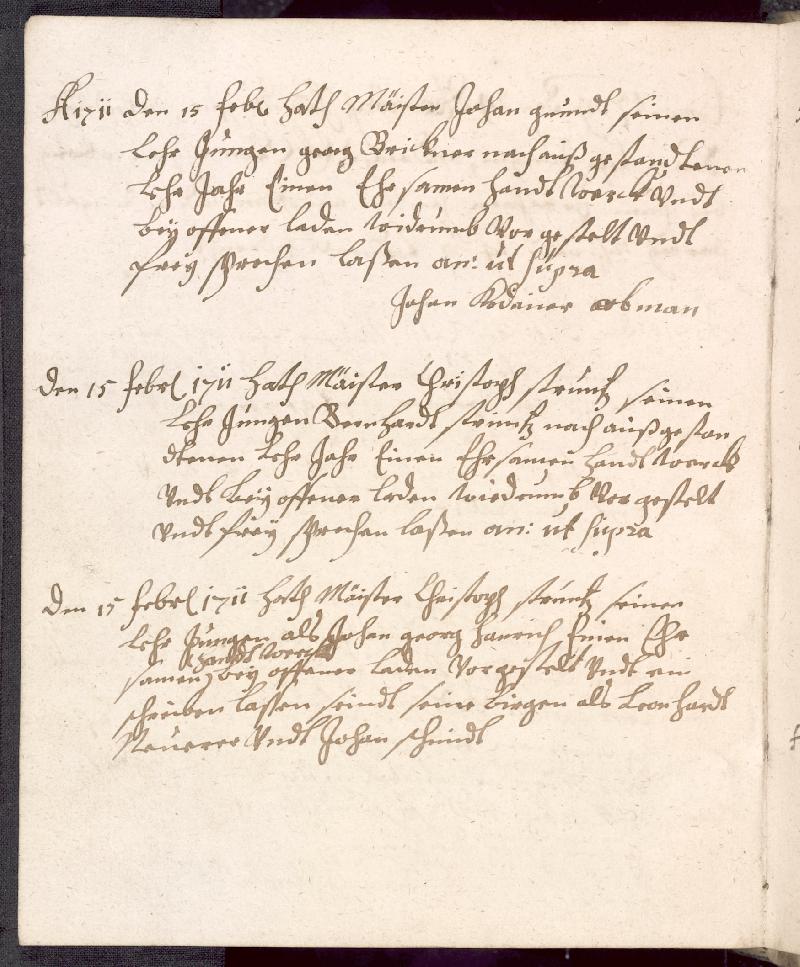 A 1711 den 15 febr hath Mäister Johan gundl seinen
lehr Jungen georg Brickner nach auß gestandtenen
lehr Jahr Einen Ehrsamen handtwerck Vndt
beÿ offener laden widrumb Vorgestelt Vndt
freÿ sprechen laßen an: ut supra
Johan Kodauer obman
den 15 febrl 1711 hath Mäister Christoph strunz seinen
lehr Jungen Bernhardt strunz nach außgestan
dtenen lehr Jahr Einen Ehrsamen handtwerck
Vndt beÿ offener laden wiedrumb Vorgestelt
Vndt freÿ sprechen laßen an: ut supra
den 15 febrl 1711 hath Mäister Christoph strunz seinen
lehr Jungen als Johan georg hanrich Einen Ehr
handtwerck
samen beÿ offener laden Vorgestelt Vndt ein
schreiben lassen seindt seine birgen als Leonhardt
Vndt Johan schindl